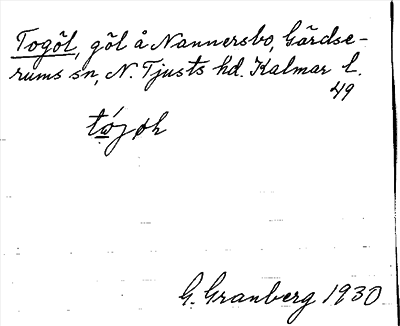 Togöl, göl å Nannersbo, Gärdse-
rums sn, N. Tjusts hd. Kalmar l.
49
G. Granberg 1930